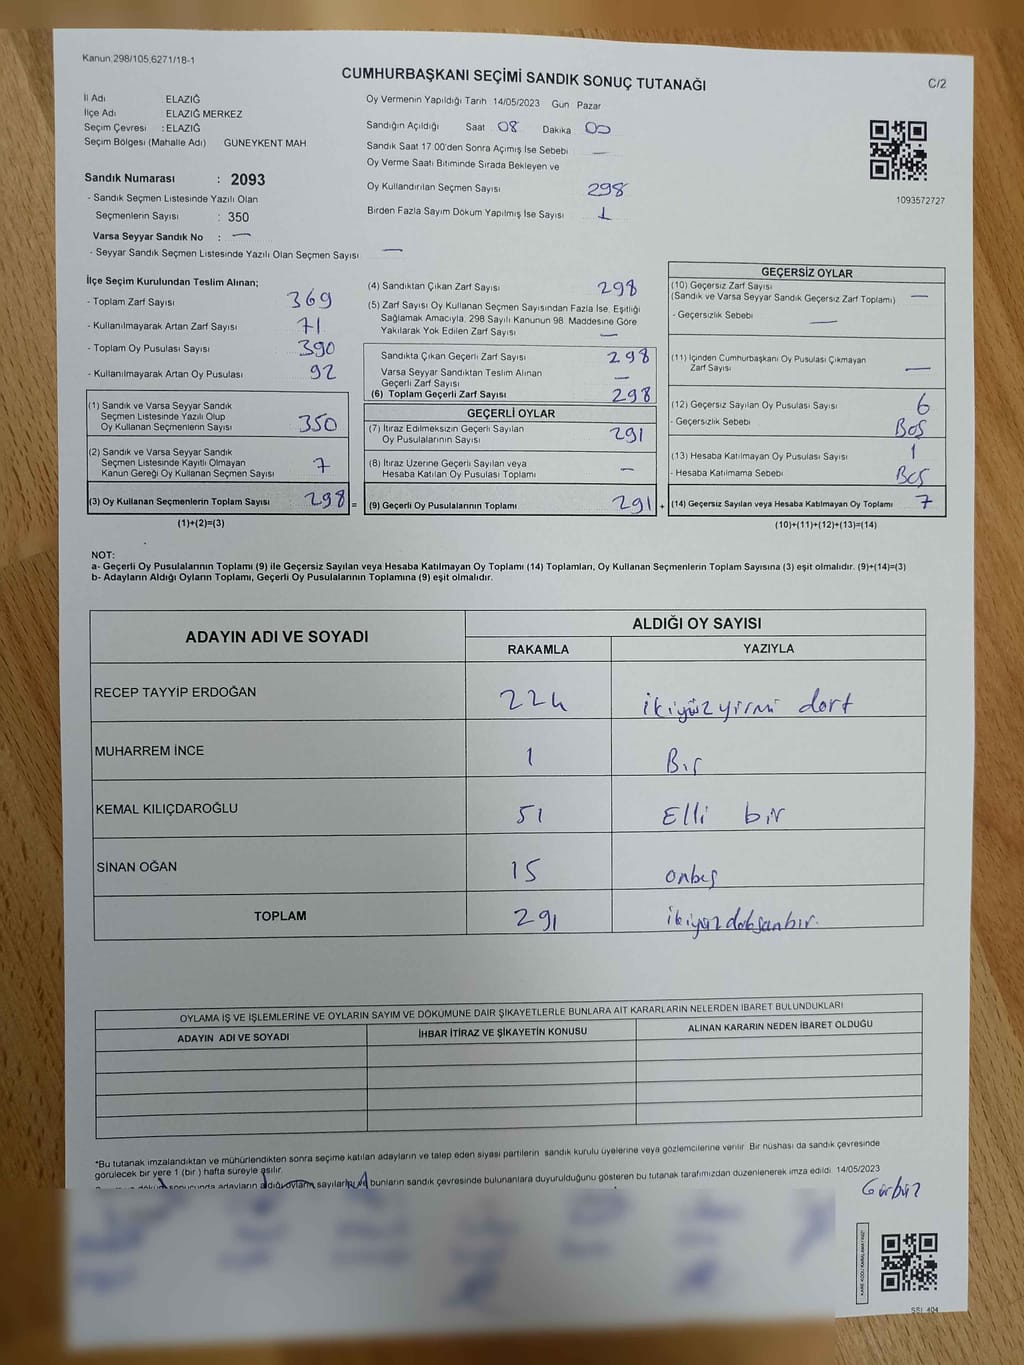 Kanun;298/105,6271/18-1
CUMHURBAŞKANI SEÇİMİ SANDIK SONUÇ TUTANAĞI
C/2
İl Adı ELAZIĞ
İlçe Adı ELAZIĞ MERKEZ
Seçim Çevresi : ELAZIĞ
Seçim Bölgesi (Mahalle Adı) GUNEYKENT MAH
Sandık Numarası : 2093
- Sandık Seçmen Listesinde Yazılı Olan
Seçmenlerin Sayısı : 350
Varsa Seyyar Sandık No : —
- Seyyar Sandık Seçmen Listesinde Yazılı Olan Seçmen Sayısı —
Oy Vermenin Yapıldığı Tarih 14/05/2023 Gün Pazar
Sandığın Açıldığı Saat 08 Dakika 00
Sandık Saat 17.00'den Sonra Açımış İse Sebebi —
Oy Verme Saati Bitiminde Sırada Bekleyen ve
Oy Kullandırılan Seçmen Sayısı 298
Birden Fazla Sayım Döküm Yapılmış İse Sayısı 1
1093572727
İlçe Seçim Kurulundan Teslim Alınan;
- Toplam Zarf Sayısı 369
- Kullanılmayarak Artan Zarf Sayısı 71
- Toplam Oy Pusulası Sayısı 390
- Kullanılmayarak Artan Oy Pusulası 92
(1) Sandık ve Varsa Seyyar Sandık
Seçmen Listesinde Yazılı Olup
Oy Kullanan Seçmenlerin Sayısı 350
(2) Sandık ve Varsa Seyyar Sandık
Seçmen Listesinde Kayıtlı Olmayan
Kanun Gereği Oy Kullanan Seçmen Sayısı 7
(3) Oy Kullanan Seçmenlerin Toplam Sayısı 298 =
(1)+(2)=(3)
(4) Sandıktan Çıkan Zarf Sayısı 298
(5) Zarf Sayısı Oy Kullanan Seçmen Sayısından Fazla İse, Eşitliği
Sağlamak Amacıyla, 298 Sayılı Kanunun 98. Maddesine Göre
Yakılarak Yok Edilen Zarf Sayısı —
Sandıkta Çıkan Geçerli Zarf Sayısı 298
Varsa Seyyar Sandıktan Teslim Alınan
Geçerli Zarf Sayısı —
(6) Toplam Geçerli Zarf Sayısı 298
GEÇERLİ OYLAR
(7) İtiraz Edilmeksizin Geçerli Sayılan
Oy Pusulalarının Sayısı 291
(8) İtiraz Üzerine Geçerli Sayılan veya
Hesaba Katılan Oy Pusulası Toplamı —
(9) Geçerli Oy Pusulalarının Toplamı 291 +
GEÇERSİZ OYLAR
(10) Geçersiz Zarf Sayısı
(Sandık ve Varsa Seyyar Sandık Geçersiz Zarf Toplamı) —
- Geçersizlik Sebebi —
(11) İçinden Cumhurbaşkanı Oy Pusulası Çıkmayan
Zarf Sayısı —
(12) Geçersiz Sayılan Oy Pusulası Sayısı 6
- Geçersizlik Sebebi Boş
(13) Hesaba Katılmayan Oy Pusulası Sayısı 1
- Hesaba Katılmama Sebebi Boş
(14) Geçersiz Sayılan veya Hesaba Katılmayan Oy Toplamı 7
(10)+(11)+(12)+(13)=(14)
NOT:
a- Geçerli Oy Pusulalarının Toplamı (9) ile Geçersiz Sayılan veya Hesaba Katılmayan Oy Toplamı (14) Toplamları, Oy Kullanan Seçmenlerin Toplam Sayısına (3) eşit olmalıdır. (9)+(14)=(3)
b- Adayların Aldığı Oyların Toplamı, Geçerli Oy Pusulalarının Toplamına (9) eşit olmalıdır.
ADAYIN ADI VE SOYADI
ALDIĞI OY SAYISI
RAKAMLA YAZIYLA
RECEP TAYYİP ERDOĞAN 224 ikiyüzyirmi dört
MUHARREM İNCE 1 Bir
KEMAL KILIÇDAROĞLU 51 Elli bir
SİNAN OĞAN 15 onbeş
TOPLAM 291 ikiyüzdoksanbir.
OYLAMA İŞ VE İŞLEMLERİNE VE OYLARIN SAYIM VE DÖKÜMÜNE DAİR ŞİKAYETLERLE BUNLARA AİT KARARLARIN NELERDEN İBARET BULUNDUKLARI
ADAYIN ADI VE SOYADI İHBAR İTİRAZ VE ŞİKAYETİN KONUSU ALINAN KARARIN NEDEN İBARET OLDUĞU
*Bu tutanak imzalandıktan ve mühürlendikten sonra seçime katılan adayların ve talep eden siyasi partilerin sandık kurulu üyelerine veya gözlemcilerine verilir. Bir nüshası da sandık çevresinde
görülecek bir yere 1 (bir) hafta süreyle asılır.
sonucunda adayların aldığı oyların sayıları bunların sandık çevresinde bulunanlara duyurulduğunu gösteren bu tutanak tarafımızdan düzenlenerek imza edildi. 14/05/2023
Gürbüz